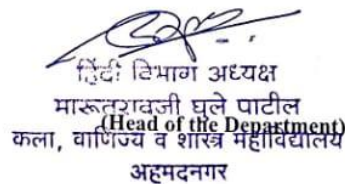 हिंदी विभाग अध्यक्ष
मारूतरावजी घुले पाटील
(Head of the Department)
कला, वाणिज्य व शास्त्र महाविद्यालय
अहमदनगर